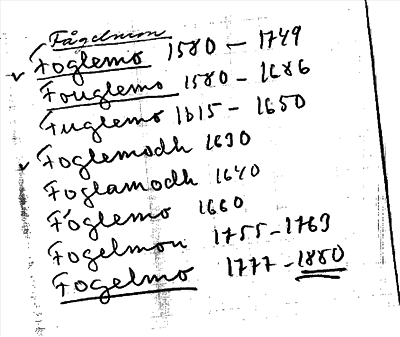 Fågelmon
Foglemo 1580 – 1749
Fouglemo 1580 – 1686
Fuglemo 1615 – 1650
Foglemodh 1630
Foglamodh 1640
Foglemo 1660
Fogelmon 1755 – 1763
Fogelmo 1777 – 1880